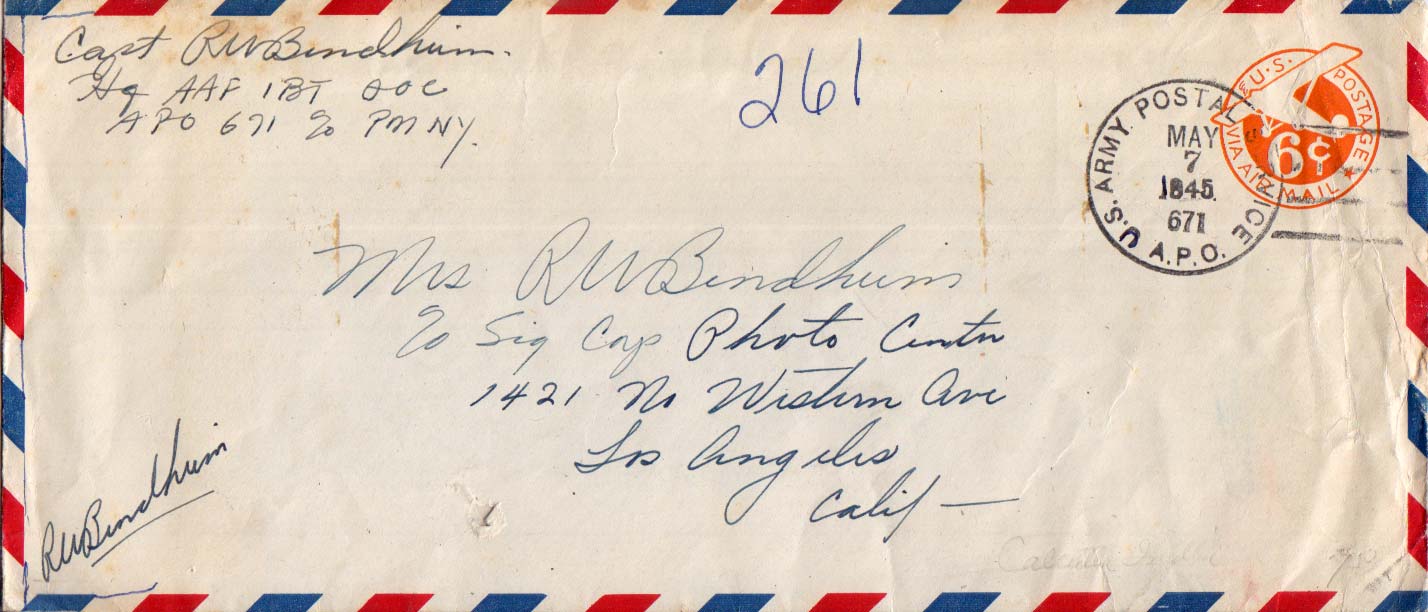 Capt RW Bendheim.
Hq AAF IBT OOC
APO 671 c/o PM NY.
261
U.S. POSTAGE
VIA AIR MAIL
6¢
U.S. ARMY POSTAL SERVICE
MAY
7
1945
671
A.P.O.
Mrs RW Bendheim
c/o Sig Corp Photo Center
1421 No Western Ave
Los Angeles
Calif —
RW Bendheim
Calcutta India